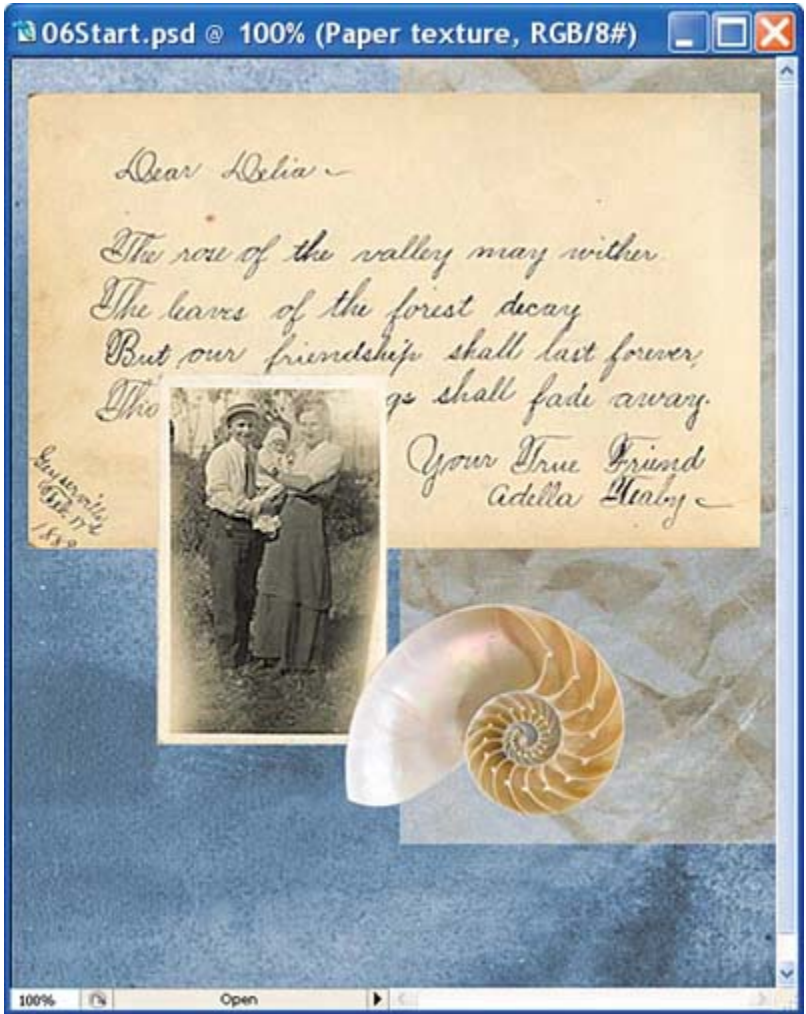 06Start.psd @ 100% (Paper texture, RGB/8#)
Dear Delia
The rose of the valley may wither
The leaves of the forest decay
But our friendship shall last forever,
Tho gs shall fade away.
Your True Friend
Adella
Geyserville
Feb. 17th
1889
100% Open